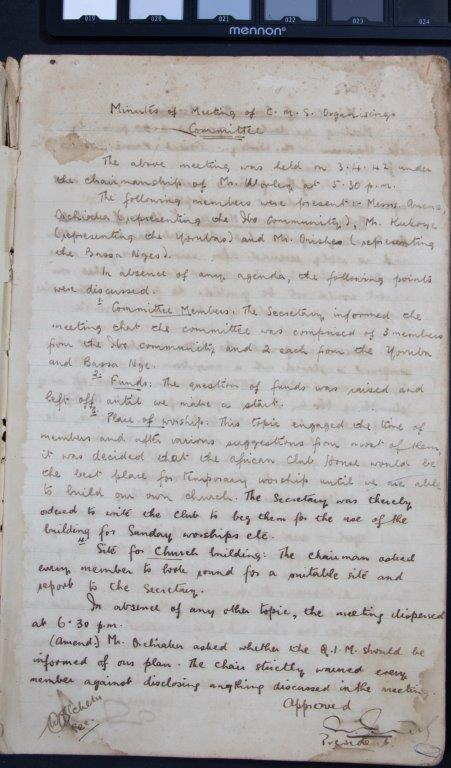 019 020 021 022 023 024
mennon®
Minutes of Meeting of C.M.S. Organising
Committee
The above meeting was held on 3.4.42 under
the chairmanship of Mr. at 5.30 p.m.
The following members were present :- Messrs.
(representing the Ibo Community), Mr.
(representing the Yorubas) and Mr. (representing
the Bassa Nges).
In absence of any agenda, the following points
were discussed.
1. Committee Members: The Secretary informed the
meeting that the committee was composed of 3 members
from the Ibo community and 2 each from the Yoruba
and Bassa Nge.
2. Funds: The question of funds was raised and
left off until we make a start.
3. Place of worship: This topic engaged the time of
members and after various suggestions from most of them,
it was decided that the african Club House would be
the best place for temporary worship until we are able
to build our own church. The Secretary was thereby
ordered to write the Club to beg them for the use of the
building for Sunday worships etc.
4. Site for Church building: The chairman asked
every member to look round for a suitable site and
report to the Secretary.
In absence of any other topic, the meeting dispersed
at 6.30 p.m.
(Amend) Mr. asked whether the Q.I.M. should be
informed of our plan. The chair strictly warned every
member against disclosing anything discussed in the meeting.
Approved
Sec.
President